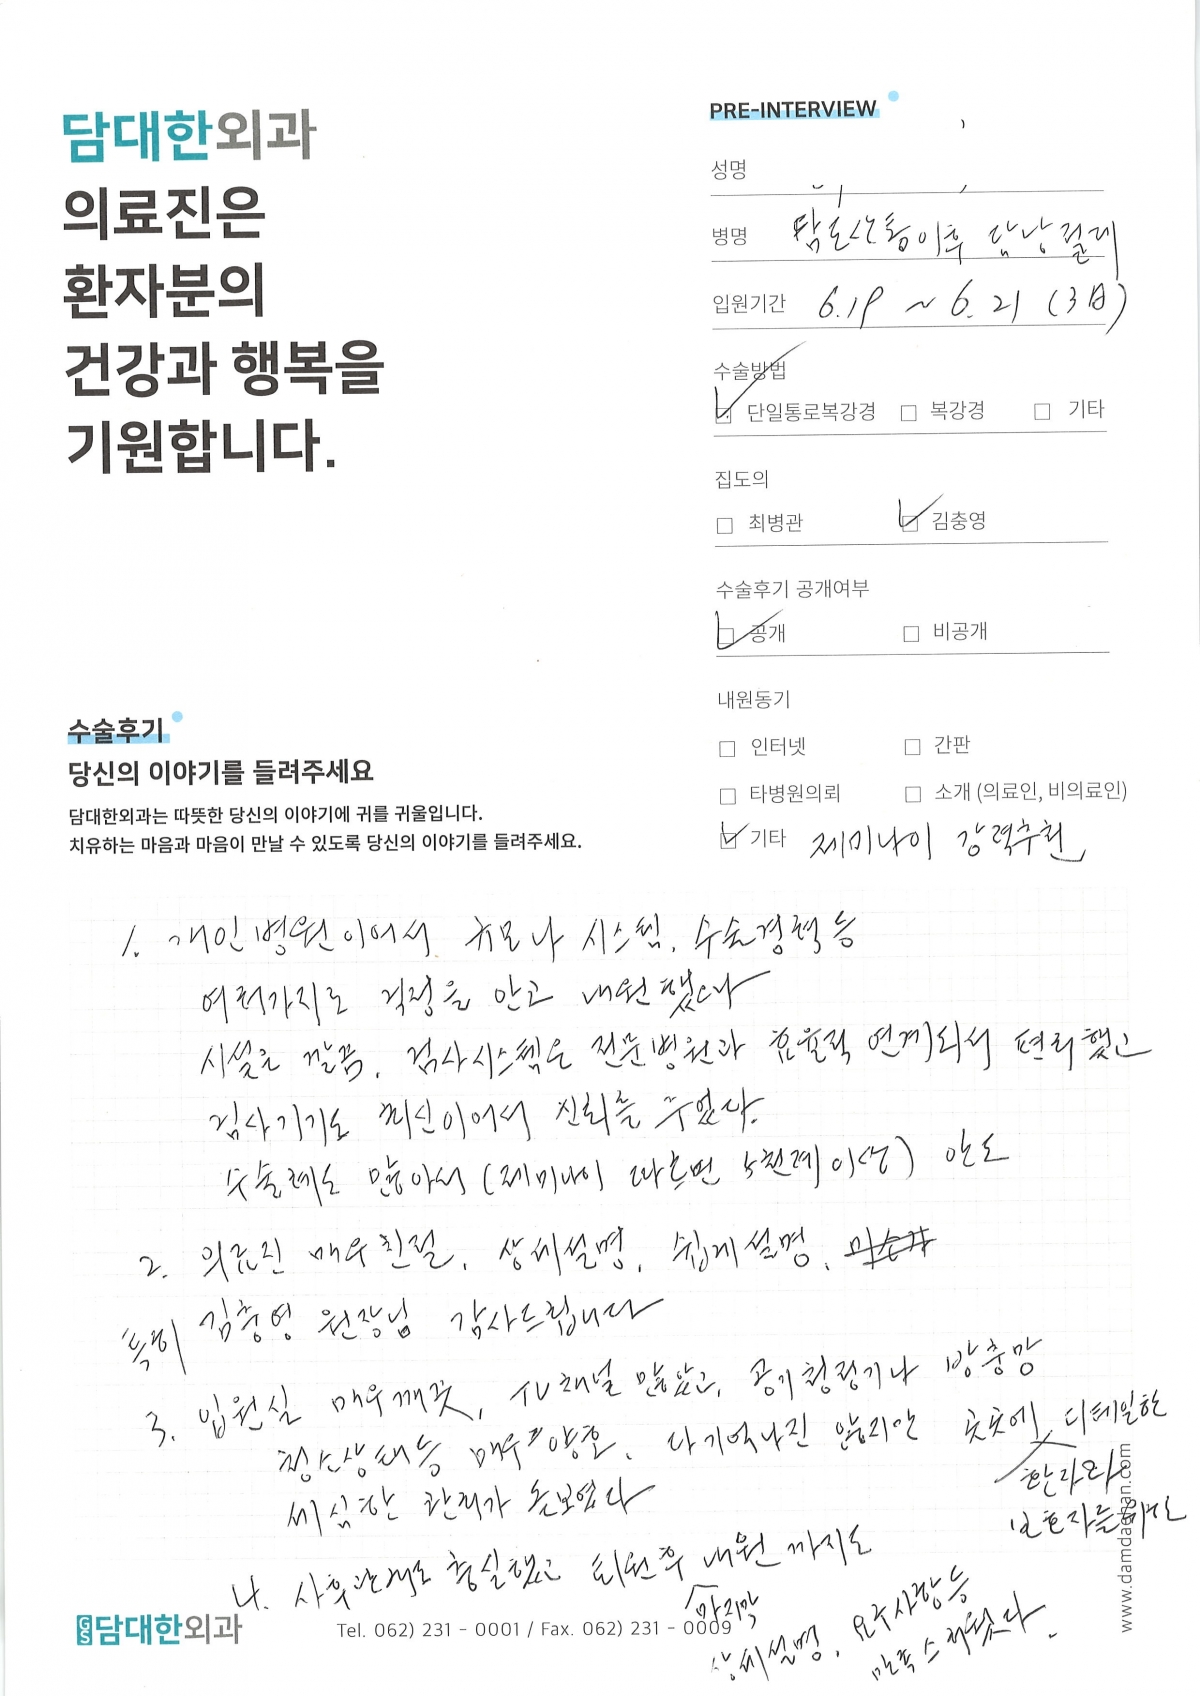 담대한외과
의료진은
환자분의
건강과 행복을
기원합니다.
PRE-INTERVIEW
성명
병명 담도산통이후 담낭절제
입원기간 6.19 ~ 6.21 (3日)
수술방법
단일통로복강경 복강경 기타
집도의
최병관 김충영
수술후기 공개여부
공개 비공개
내원동기
인터넷 간판
타병원의뢰 소개 (의료인, 비의료인)
기타 제미나이 강력추천
수술후기
당신의 이야기를 들려주세요
담대한외과는 따뜻한 당신의 이야기에 귀를 귀울입니다.
치유하는 마음과 마음이 만날 수 있도록 당신의 이야기를 들려주세요.
1. 개인병원이어서 규모나 시스템, 수술경력 등
여러가지로 걱정을 안고 내원했으나
시설은 깔끔, 검사시스템은 전문병원과 효율적 연계되서 편리했고
검사기기도 최신이어서 신뢰를 주었다.
수술례도 많아서 (제미나이 따르면 5천례이상) 안도
2. 의료진 매우친절, 상세설명, 쉽게설명,
특히 김충영 원장님 감사드립니다
3. 입원실 매우깨끗, TV채널 많았고, 공기청정기나 방충망
청소상태등 매우 양호, 다기억나진 않지만 곳곳에 디테일한
환자와
보호자를위한
세심한 관리가 돋보였다
4. 사후관리도 충실했고 퇴원후 내원 까지도
마지막
상세설명, 요구사항등
만족스러웠다.
GS담대한외과
Tel. 062) 231 - 0001 / Fax. 062) 231 - 0009
www.damdaehan.com